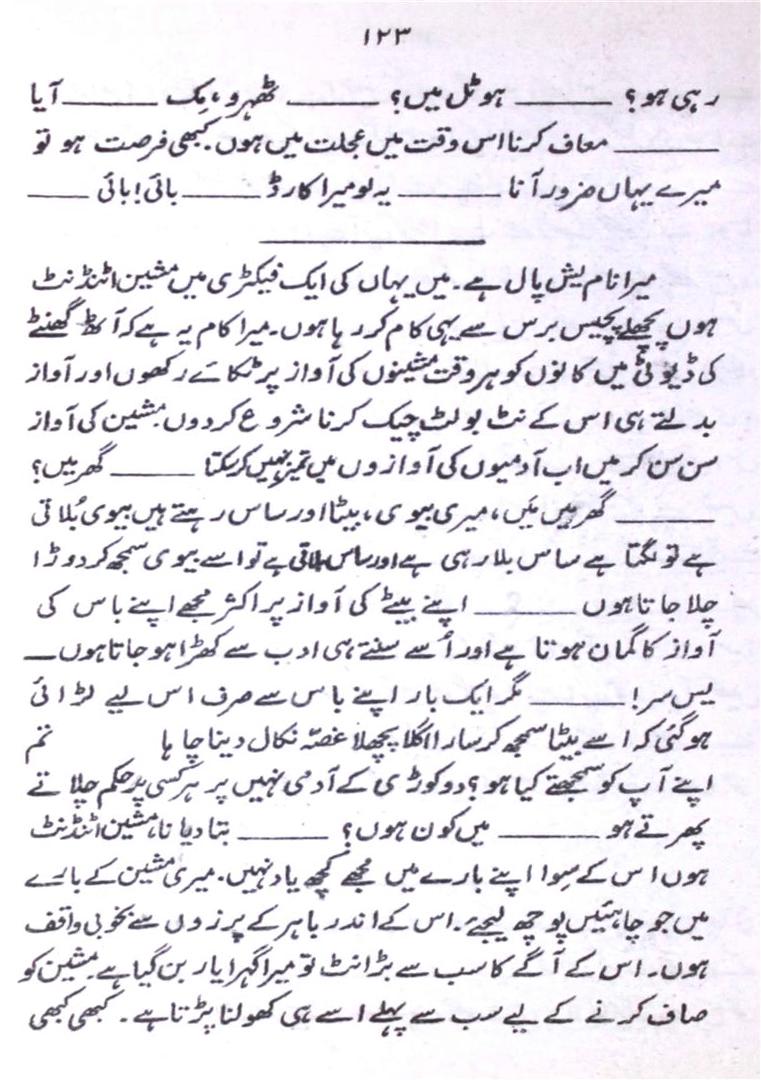 ۱۲۳
رہی ہو؟ ——— ہوٹل میں؟ ——— ٹھہرو، مِک ——— آیا
——— معاف کرنا اس وقت میں عجلت میں ہوں۔ کبھی فرصت ہو تو
میرے یہاں ضرور آنا ——— یہ لو میرا کارڈ ——— بائی! بائی ———
میرا نام یش پال ہے۔ میں یہاں کی ایک فیکٹری میں مشین اٹنڈنٹ
ہوں پچھلے پچیس برس سے یہی کام کر رہا ہوں۔ میرا کام یہ ہے کہ آٹھ گھنٹے
کی ڈیوٹی میں کانوں کو ہر وقت مشینوں کی آواز پر ٹکائے رکھوں اور آواز
بدلتے ہی اس کے نٹ بولٹ چیک کرنا شروع کر دوں۔ مشین کی آواز
سن سن کر میں اب آدمیوں کی آوازوں میں تمیز نہیں کر سکتا ——— گھر میں؟
——— گھر میں مَیں، میری بیوی، بیٹا اور ساس رہتے ہیں بیوی بُلاتی
ہے تو لگتا ہے ساس بلا رہی ہے اور ساس بلاتی ہے تو اسے بیوی سمجھ کر دوڑا
چلا جاتا ہوں ——— اپنے بیٹے کی آواز پر اکثر مجھے اپنے باس کی
آواز کا گمان ہوتا ہے اور اُسے سنتے ہی ادب سے کھڑا ہو جاتا ہوں—
یس سر! ——— مگر ایک بار اپنے باس سے صرف اس لیے لڑائی
ہو گئی کہ اسے بیٹا سمجھ کر سارا اگلا پچھلا غصّہ نکال دینا چاہا تم
اپنے آپ کو سمجھتے کیا ہو؟ دو کوڑی کے آدمی نہیں پر ہر کسی پر حکم چلاتے
پھرتے ہو ——— میں کون ہوں؟ ——— بتا دیا نا، مشین اٹنڈنٹ
ہوں اس کے سِوا اپنے بارے میں مجھے کچھ یاد نہیں۔ میری مشین کے بارے
میں جو چاہئیں پوچھ لیجئے۔ اس کے اندر باہر کے پرزوں سے بخوبی واقف
ہوں۔ اس کے آگے کا سب سے بڑا نٹ تو میرا گہرا یار بن گیا ہے۔ مشین کو
صاف کرنے کے لیے سب سے پہلے اسے ہی کھولنا پڑتا ہے۔ کبھی کبھی